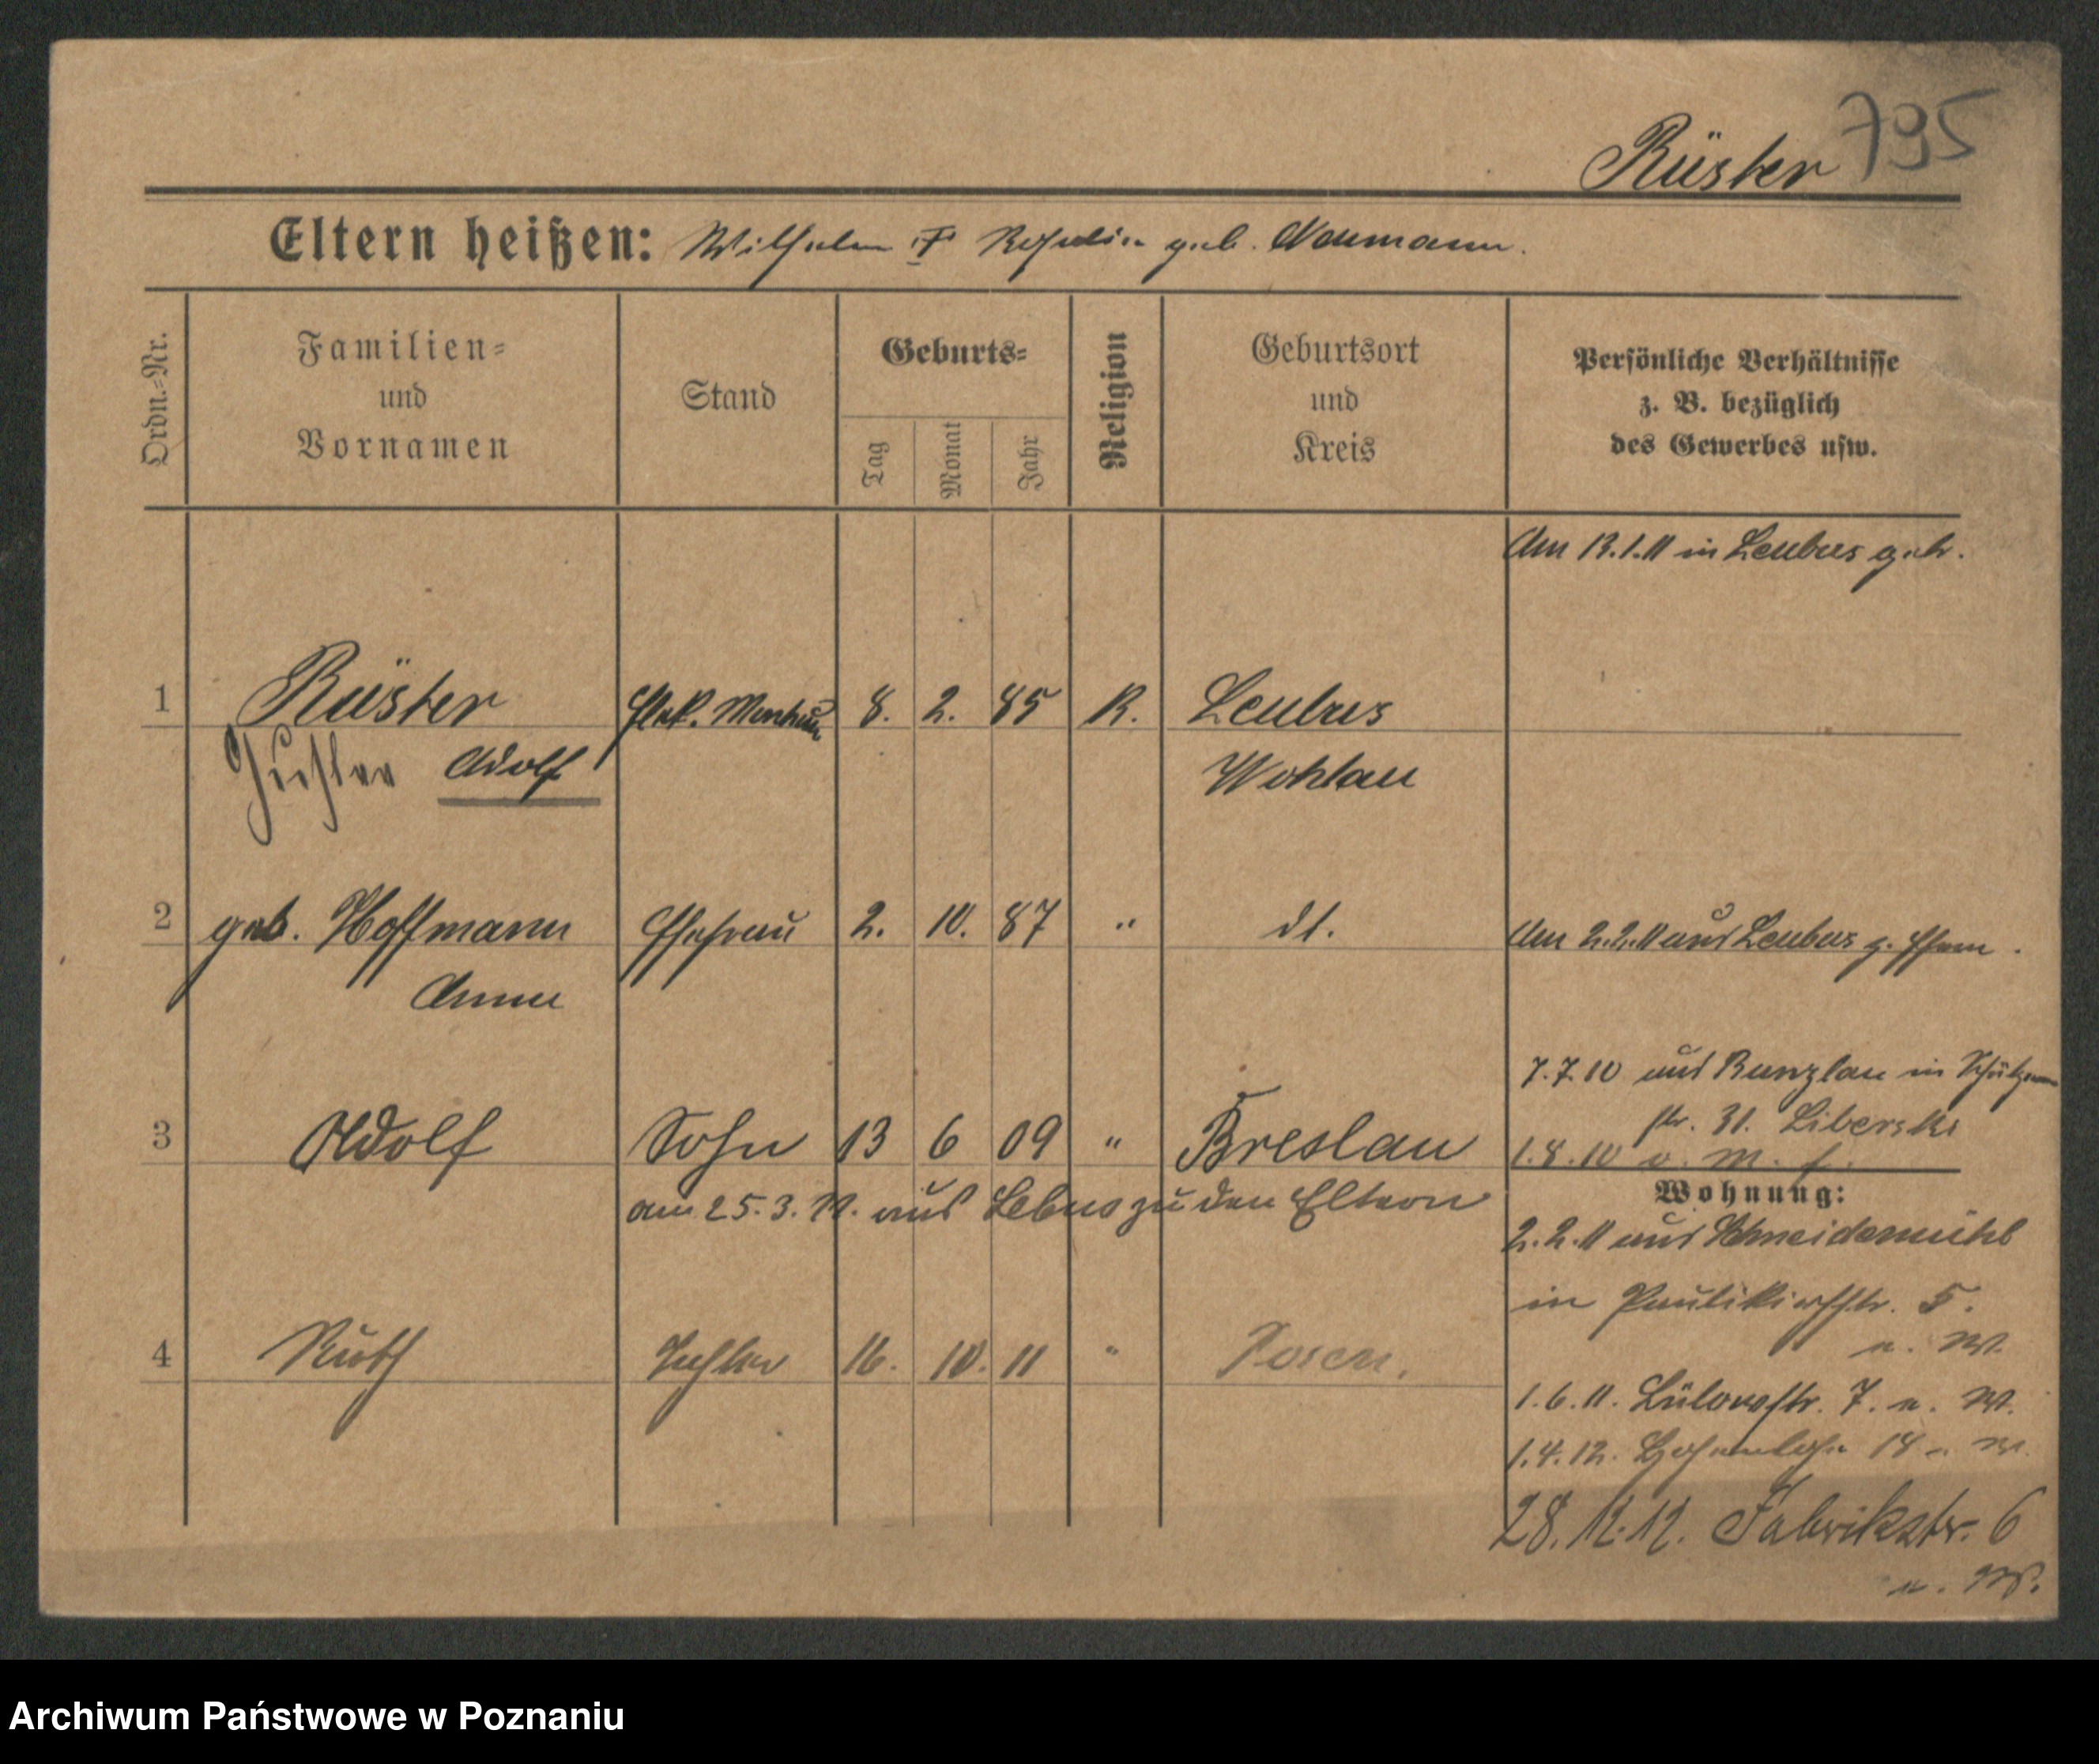 795
Rüster
Eltern heißen: Wilhelm geb. Neumann.
Ordn.-Nr.
Familien-
und
Vornamen
Stand
Geburts-
Tag
Monat
Jahr
Religion
Geburtsort
und
Kreis
Persönliche Verhältnisse
z. B. bezüglich
des Gewerbes usw.
Am 13.1.11 in Leubus geh.
1 Rüster 8. 2. 85 K. Leubus
Adolf Wohlau
2 geb. Hoffmann Ehefrau 2. 10. 87 " dt. Am 2.2.11 aus Leubus z. Ehem.
Anna
7.7.10 aus Bunzlau in Schützen
str. 31. Liberski
3 Adolf Sohn 13 6 09 " Breslau 1.8.10 v. M. f.
am 25.3.12. aus Lebus zu den Eltern
Wohnung:
2.2.11 aus Schneidemühl
in Paulikirchstr. 5.
u. W.
4 Ruth Tochter 16. 10. 11 " Posen.
1.6.11. Bülowstr. 7. u. W.
1.4.12. Hohenlohe 18
28.12.12. Fabrikstr. 6
u. W.
Archiwum Państwowe w Poznaniu